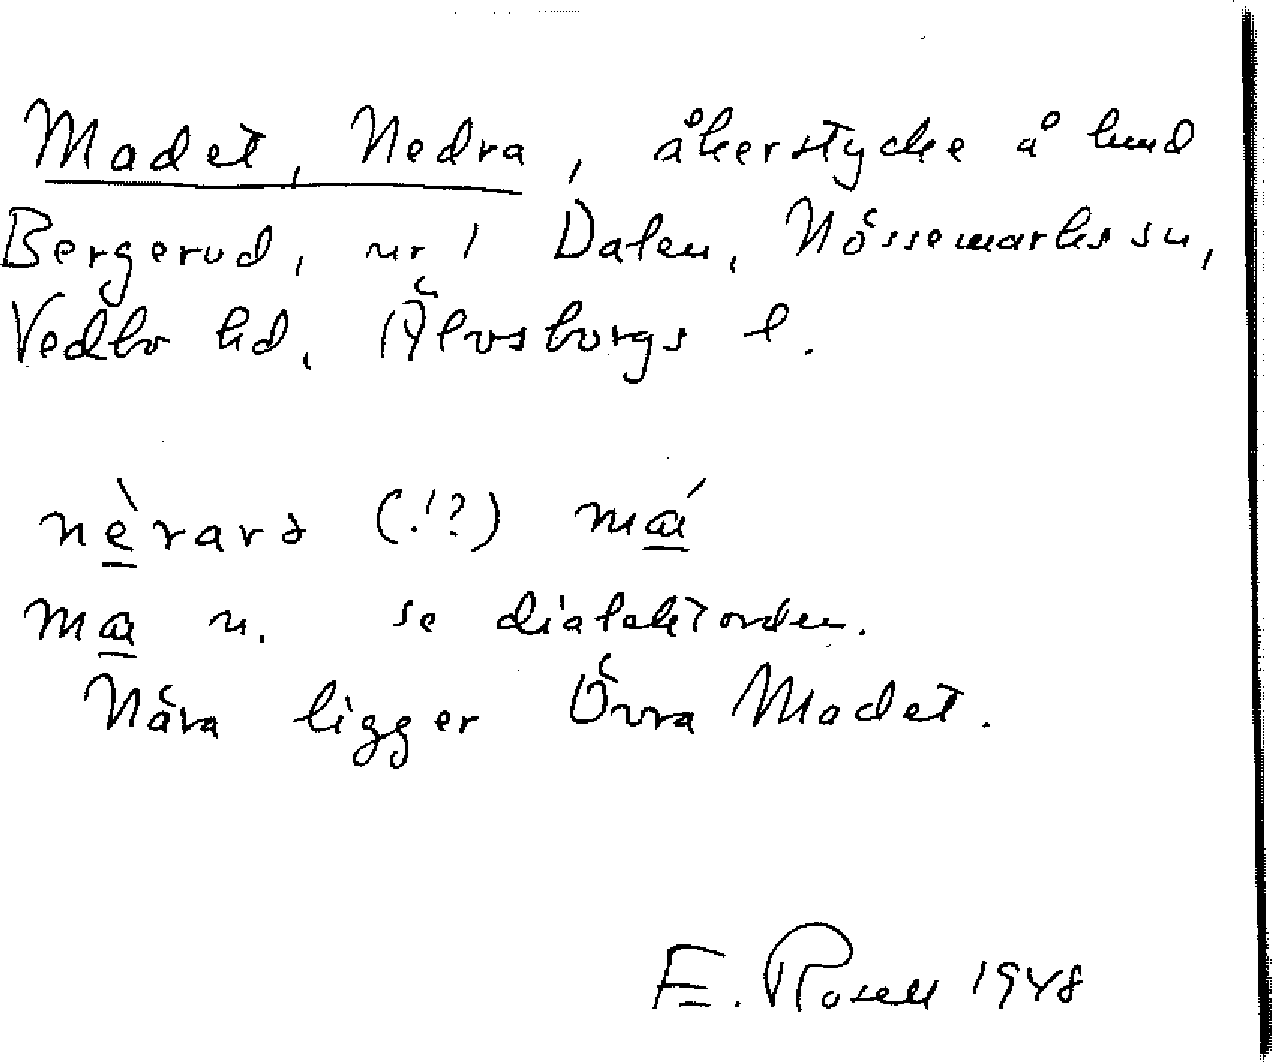 Madet, Nedra, åkerstycke å hmd
Bergerud, nr 1 Dalen, Nössemarks sn,
Vedbo hd, Älvsborgs l.
nè̱rarə (!?) má̱
ma̱ n. se dialektorden.
Nära ligger Övra Madet.
E. Rosell 1948